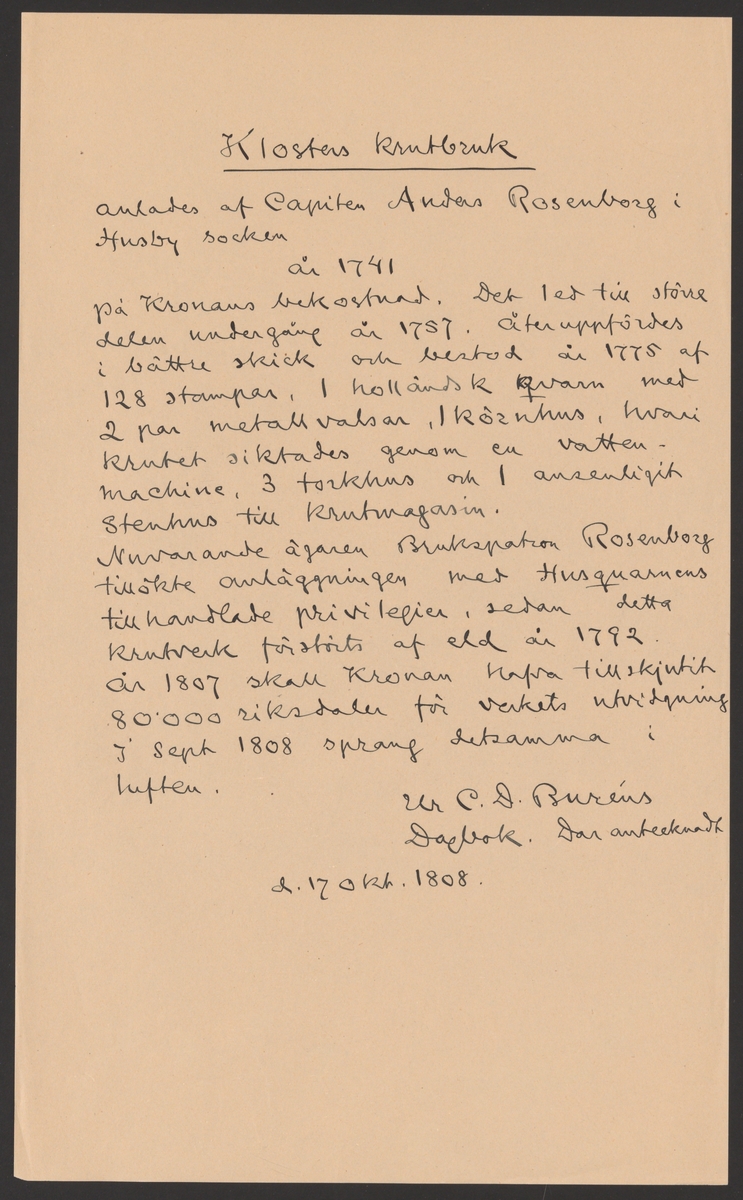 Klosters krutbruk
anlades af Capiten Anders Rosenborg i
Husby socken
år 1741
på Kronans bekostnad. Det led till större
delen undergång år 1757. Återuppfördes
i bättre skick och bestod år 1775 af
128 stampar, 1 holländsk qvarn med
2 par metallvalsar, 1 körnhus, hvari
krutet siktades genom en vatten-
machine, 3 torkhus och 1 ansenligit
Stenhus till krutmagasin.
Nuvarande ägaren Brukspatron Rosenborg
tillökte anläggningen med Husquarnens
tillhandlade privilegier, sedan detta
krutverk förstörts af eld år 1792.
År 1807 skall Kronan hafva tillskjutit
80'000 riksdaler för verkets utvidgning
I Sept 1808 sprang detsamma i
luften.
Ur C. D. Buréns
Dagbok. Der antecknadt
d. 17 Okt. 1808.